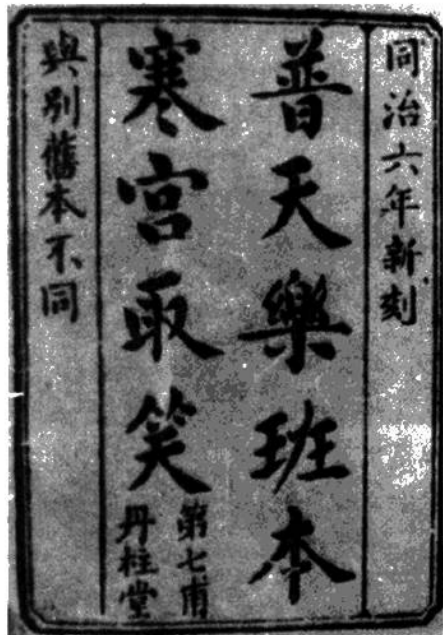 同治六年新刻
普天樂班本
寒宮取笑
第七甫
丹柱堂
與別舊本不同